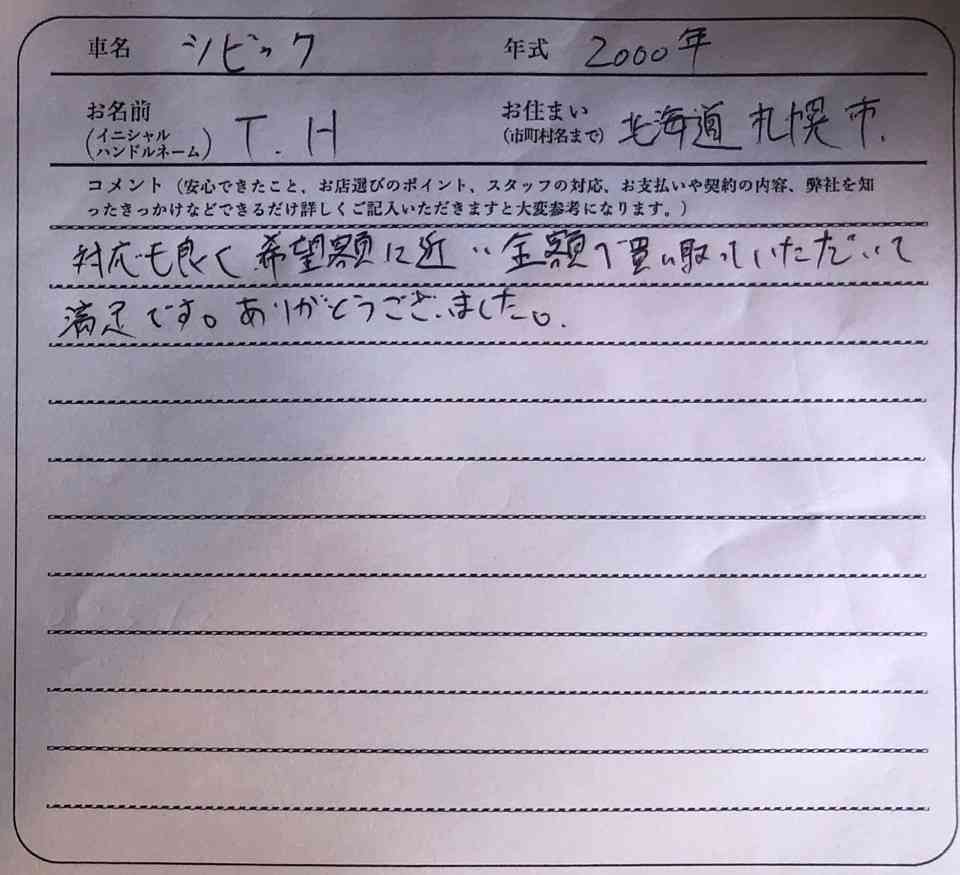 車名 シビック 年式 2000年
お名前 (イニシャル ハンドルネーム) T.H お住まい (市町村名まで) 北海道 札幌市.
コメント(安心できたこと、お店選びのポイント、スタッフの対応、お支払いや契約の内容、弊社を知
ったきっかけなどできるだけ詳しくご記入いただきますと大変参考になります。)
対応も良く希望額に近い金額で買い取っていただいて
満足です。ありがとうございました。